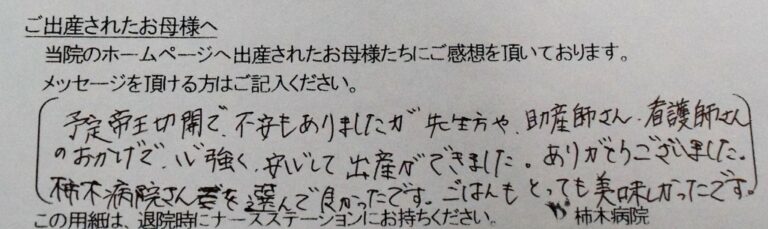 ご出産されたお母様へ
当院のホームページへ出産されたお母様たちにご感想を頂いております。
メッセージを頂ける方はご記入ください。
予定帝王切開で、不安もありましたが先生方や、助産師さん、看護師さん
のおかげで、心強く、安心して出産ができました。ありがとうございました。
柿木病院さんを選んで良かったです。ごはんもとっても美味しかったです。
この用紙は、退院時にナースステーションにお持ちください。 柿木病院